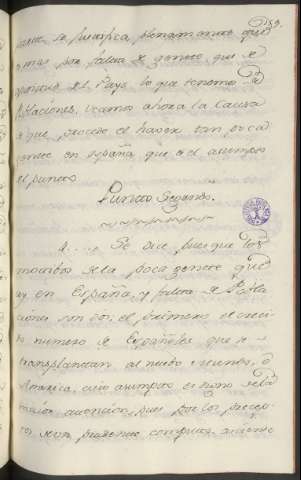 159.
se justifica plenamente que
mas por falta de gente, que de
del Pays lo que tenemos de
Poblaciones, veamos ahora la Causa
de que procede el haver tan poca
gente en españa que es el asumpto
el puncto
Puncto Segundo.
4.... Se dice pues que los
motibos de la poca gente que
ay en España, y falta de Pobla
ciones son dos; el primero el creci
do numero de Españoles que se
transplantan al nuebo mundo, ó
America, cuio asumpto es digno de la
atencion, pues por los precep
tos de un prudente